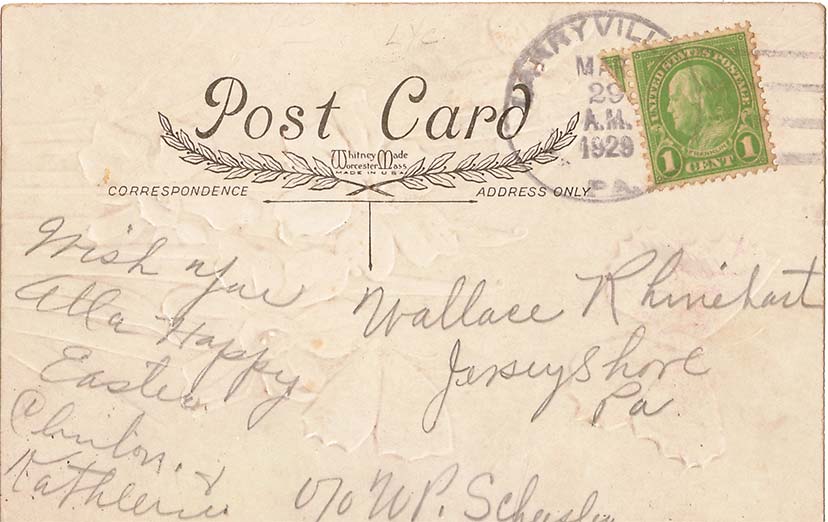 LYC
Post Card
Whitney Made
Worcester Mass
MADE IN U.S.A.
CORRESPONDENCE
ADDRESS ONLY
UNITED STATES POSTAGE
FRANKLIN
1 CENT 1
MA
29
A.M.
1929
PA.
Wish you
All a Happy
Easter
Clinton &
Kathlerine
Wallace Rhinehart
Jersey Shore
Pa
c/o W P.